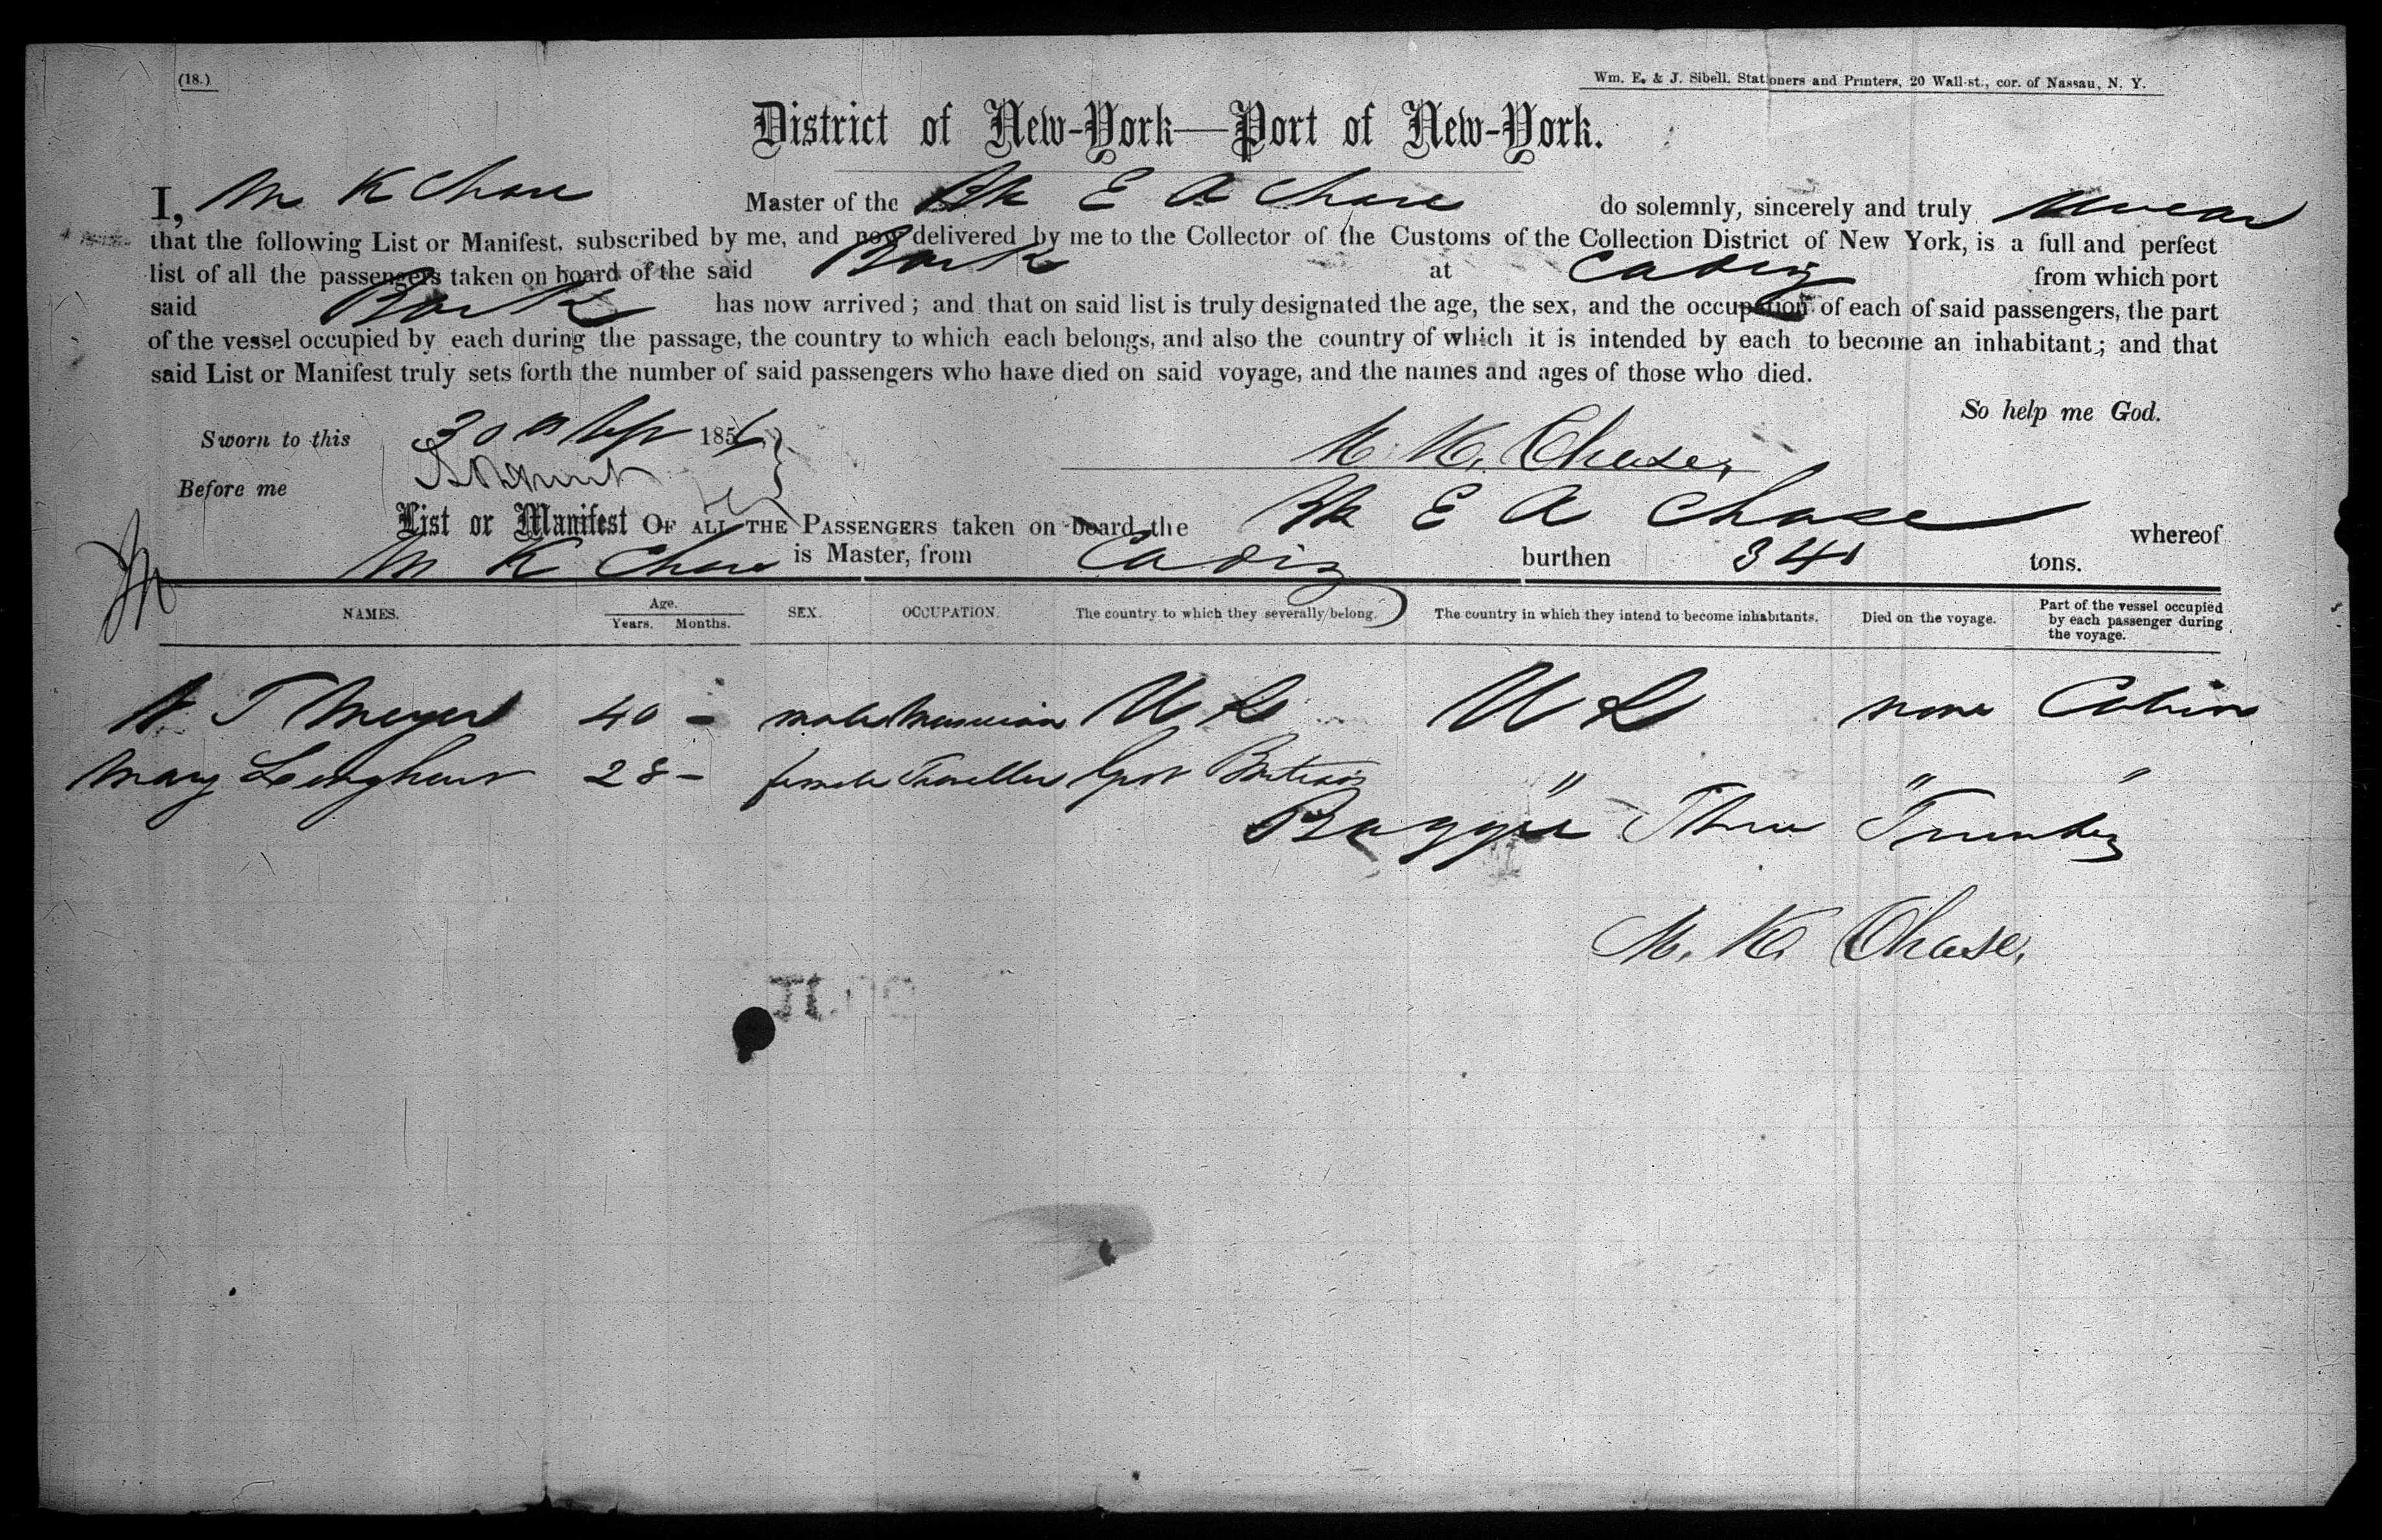 (18.)
Wm. E. & J. Sibell, Stationers and Printers, 20 Wall-st., cor. of Nassau, N. Y.
District of New-York—Port of New-York.
I, M K Chase Master of the Bk E A Chase do solemnly, sincerely and truly swear
that the following List or Manifest, subscribed by me, and now delivered by me to the Collector of the Customs of the Collection District of New York, is a full and perfect
list of all the passengers taken on board of the said Bark at Cadiz from which port
said Bark has now arrived; and that on said list is truly designated the age, the sex, and the occupation of each of said passengers, the part
of the vessel occupied by each during the passage, the country to which each belongs, and also the country of which it is intended by each to become an inhabitant; and that
said List or Manifest truly sets forth the number of said passengers who have died on said voyage, and the names and ages of those who died.
So help me God.
Sworn to this 30 185
M. K. Chase,
Before me
List or Manifest OF ALL THE PASSENGERS taken on board the Bk E A Chase whereof
M K Chase is Master, from Cadiz burthen 341 tons.
NAMES. Age. Years. Months. SEX. OCCUPATION. The country to which they severally belong. The country in which they intend to become inhabitants. Died on the voyage. Part of the vessel occupied by each passenger during the voyage.
T Meyer 40 - male Musician U S U S none Cabin
Mary 28 - female Traveller Great Britain " " "
Baggage Three Trunks
M. K. Chase,